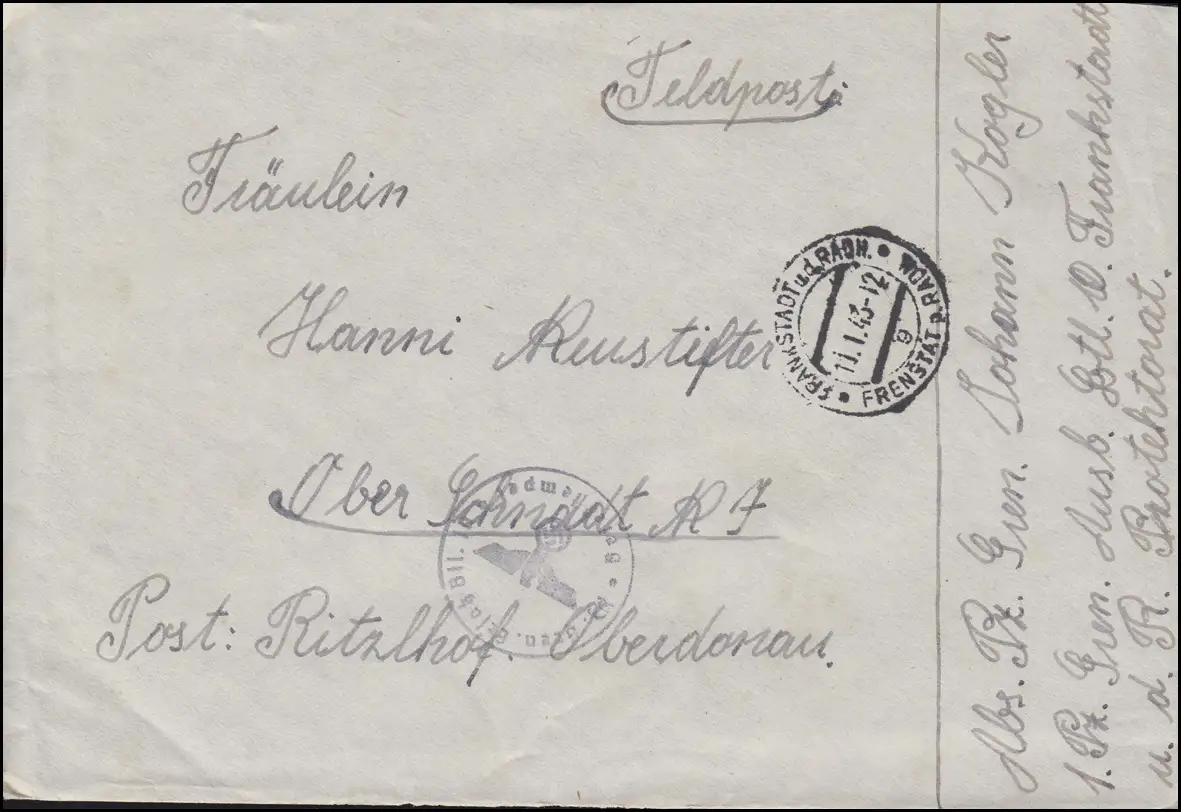 Feldpost.
Fräulein
Hanni Neustifter
Ober
Post: Ritzlhof. Oberdonau.
FRANKSTADT u.d. RADH. * FRENŠTÁT p. RADH.
11.1.43-12
Abs. Pz. Gren. Johann Kogler
1. Pz. Gren. Ausb. Btl. 10. Frankstadt
u. d. R. Protektorat.